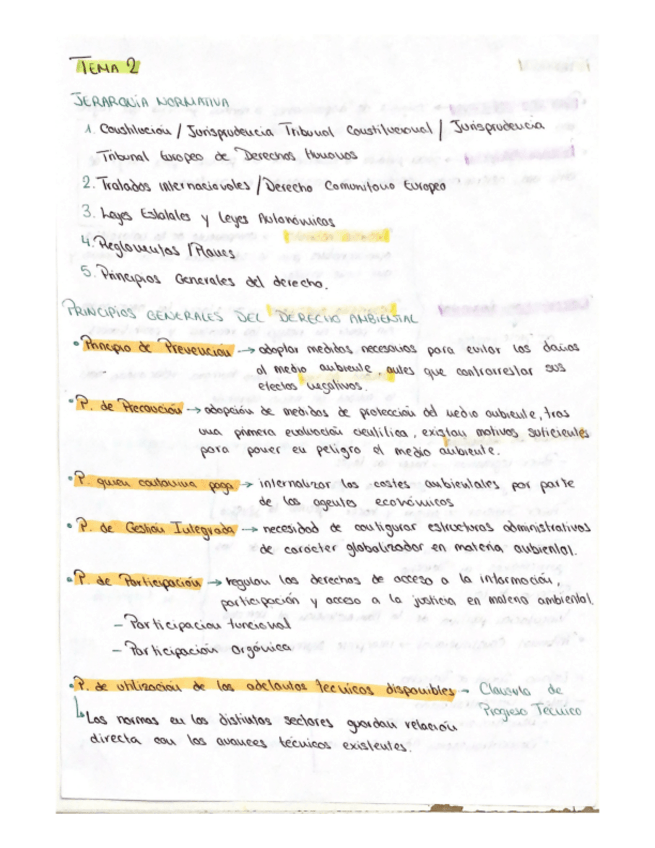 TEMA 2
JERARQUÍA NORMATIVA
1. Constitución / Jurisprudencia Tribunal Constitucional / Jurisprudencia
Tribunal Europeo de Derechos Humanos
2. Tratados internacionales / Derecho Comunitario Europeo
3. Leyes Estatales y Leyes Autonómicas
4. Reglamentos / Planes
5. Principios Generales del derecho.
PRINCIPIOS GENERALES DEL DERECHO AMBIENTAL
• Principio de Prevención → adoptar medidas necesarias para evitar los daños
al medio ambiente, antes que contrarrestar sus
efectos negativos.
• P. de Precaución → adopción de medidas de protección del medio ambiente, tras
una primera evaluación científica, existan motivos suficientes
para poner en peligro al medio ambiente.
• P. quien contamina paga → internalizar los costes ambientales por parte
de los agentes económicos
• P. de Gestión Integrada → necesidad de configurar estructuras administrativas
de carácter globalizador en materia ambiental.
• P. de Participación → regulan los derechos de acceso a la información,
participación y acceso a la justicia en materia ambiental.
- Participación funcional
- Participación orgánica
• P. de utilización de los adelantos técnicos disponibles → Clausula de
Progreso Técnico
↳ Las normas en los distintos sectores guardan relación
directa con los avances técnicos existentes.